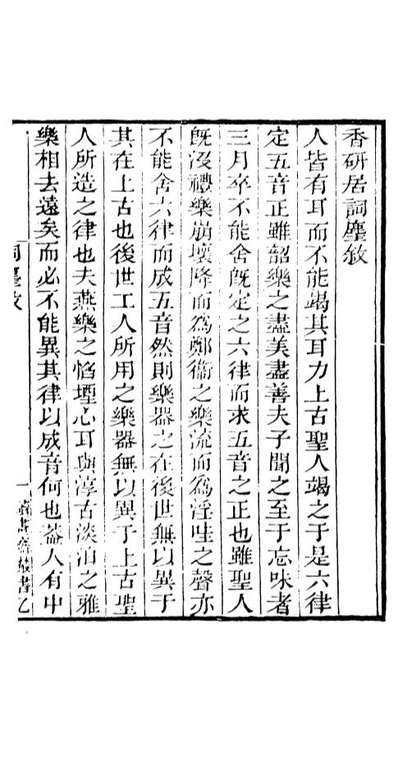 香研居詞麈敘
人皆有耳而不能竭其耳力上古聖人竭之于是六律
定五音正雖韶樂之盡美盡善夫子聞之至于忘味者
三月卒不能舍旣定之六律而求五音之正也雖聖人
旣沒禮樂崩壞降而為鄭衞之樂流而為淫哇之聲亦
不能舍六律而成五音然則樂器之在後世無以異于
其在上古也後世工人所用之樂器無以異于上古聖
人所造之律也夫燕樂之慆堙心耳與淳古淡泊之雅
樂相去遠矣而必不能異其律以成音何也葢人有中
詞麈敘
一
讀畫齋叢書乙